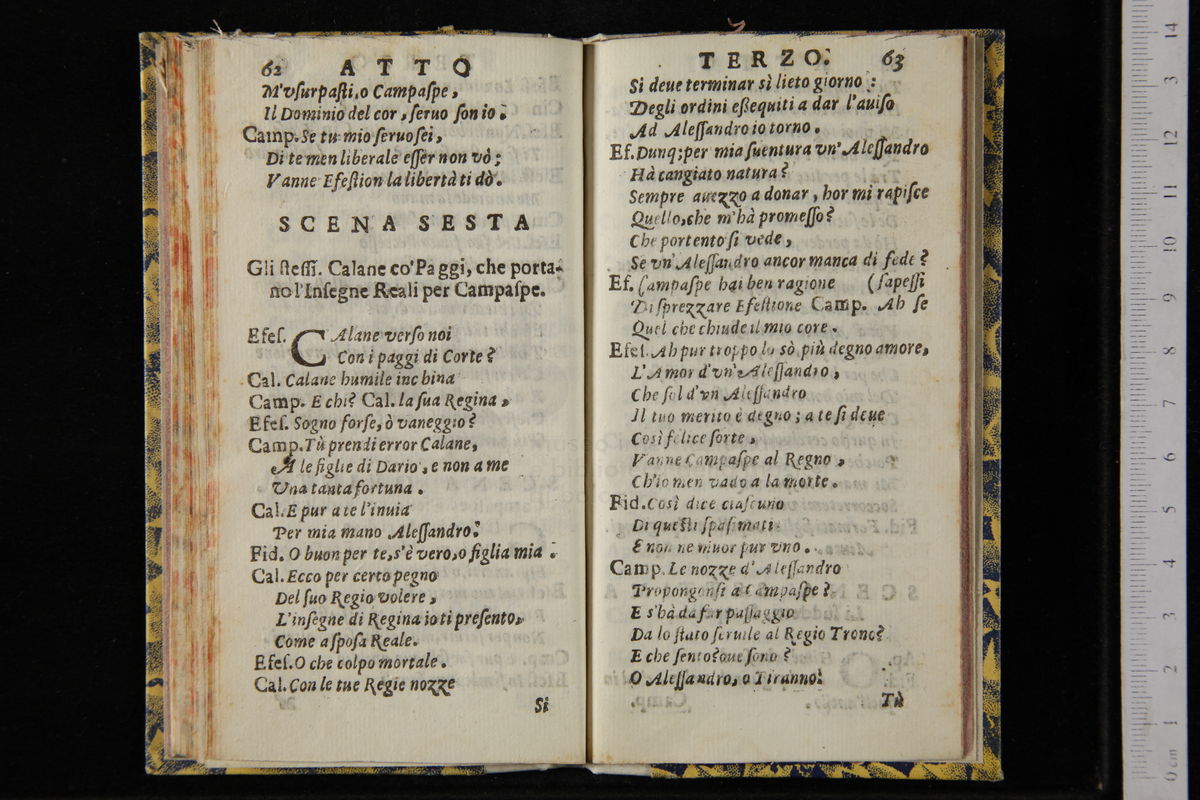 62 ATTO
M'vſurpaſti, o Campaſpe,
Il Dominio del cor, ſeruo ſon io.
Camp. Se tu mio ſeruo ſei,
Di te men liberale eſſer non vò;
Vanne Efeſtion la libertà ti dò.
SCENA SESTA
Gli ſteſſi. Calane co' Paggi, che porta-
no l'Inſegne Reali per Campaſpe.
Efeſ. CAlane verſo noi
Con i paggi di Corte?
Cal. Calane humile inchina
Camp. E chi? Cal. la ſua Regina,
Efeſ. Sogno forſe, ò vaneggio?
Camp. Tù prendi error Calane,
A le figlie di Dario, e non a me
Vna tanta fortuna.
Cal. E pur a te l'inuia
Per mia mano Aleſſandro.
Fid. O buon per te, s'è vero, o figlia mia.
Cal. Ecco per certo pegno
Del ſuo Regio volere,
L'inſegne di Regina io ti preſento,
Come a ſpoſa Reale.
Efeſ. O che colpo mortale.
Cal. Con le tue Regie nozze
Si
TERZO. 63
Si deue terminar sì lieto giorno:
Degli ordini eßequiti a dar l'auiſo
Ad Aleſſandro io torno.
Ef. Dunq; per mia ſuentura vn' Aleſſandro
Hà cangiato natura?
Sempre auezzo a donar, hor mi rapiſce
Quello, che m'hà promeſſo?
Che portento ſi vede,
Se vn' Aleſſandro ancor manca di fede?
Ef. Campaſpe hai ben ragione (ſapeſſi
Di ſprezzare Efeſtione Camp. Ah ſe
Quel che chiude il mio core.
Efeſ. Ah pur troppo lo sò più degno amore,
L'Amor d'vn' Aleſſandro,
Che ſol d'vn Aleſſandro
Il tuo merito è degno; a te ſi deue
Così felice ſorte,
Vanne Campaſpe al Regno,
Ch'io men vado a la morte.
Fid. Così dice ciaſcuno
Di queſti ſpaſimati
E non ne muor pur vno.
Camp. Le nozze d'Aleſſandro
Propongonſi a Campaſpe?
E s'hà da far paſſaggio
Da lo ſtato ſeruile al Regio Trono?
E che ſento? oue ſono?
O Aleſſandro, o Tiranno!
Tù